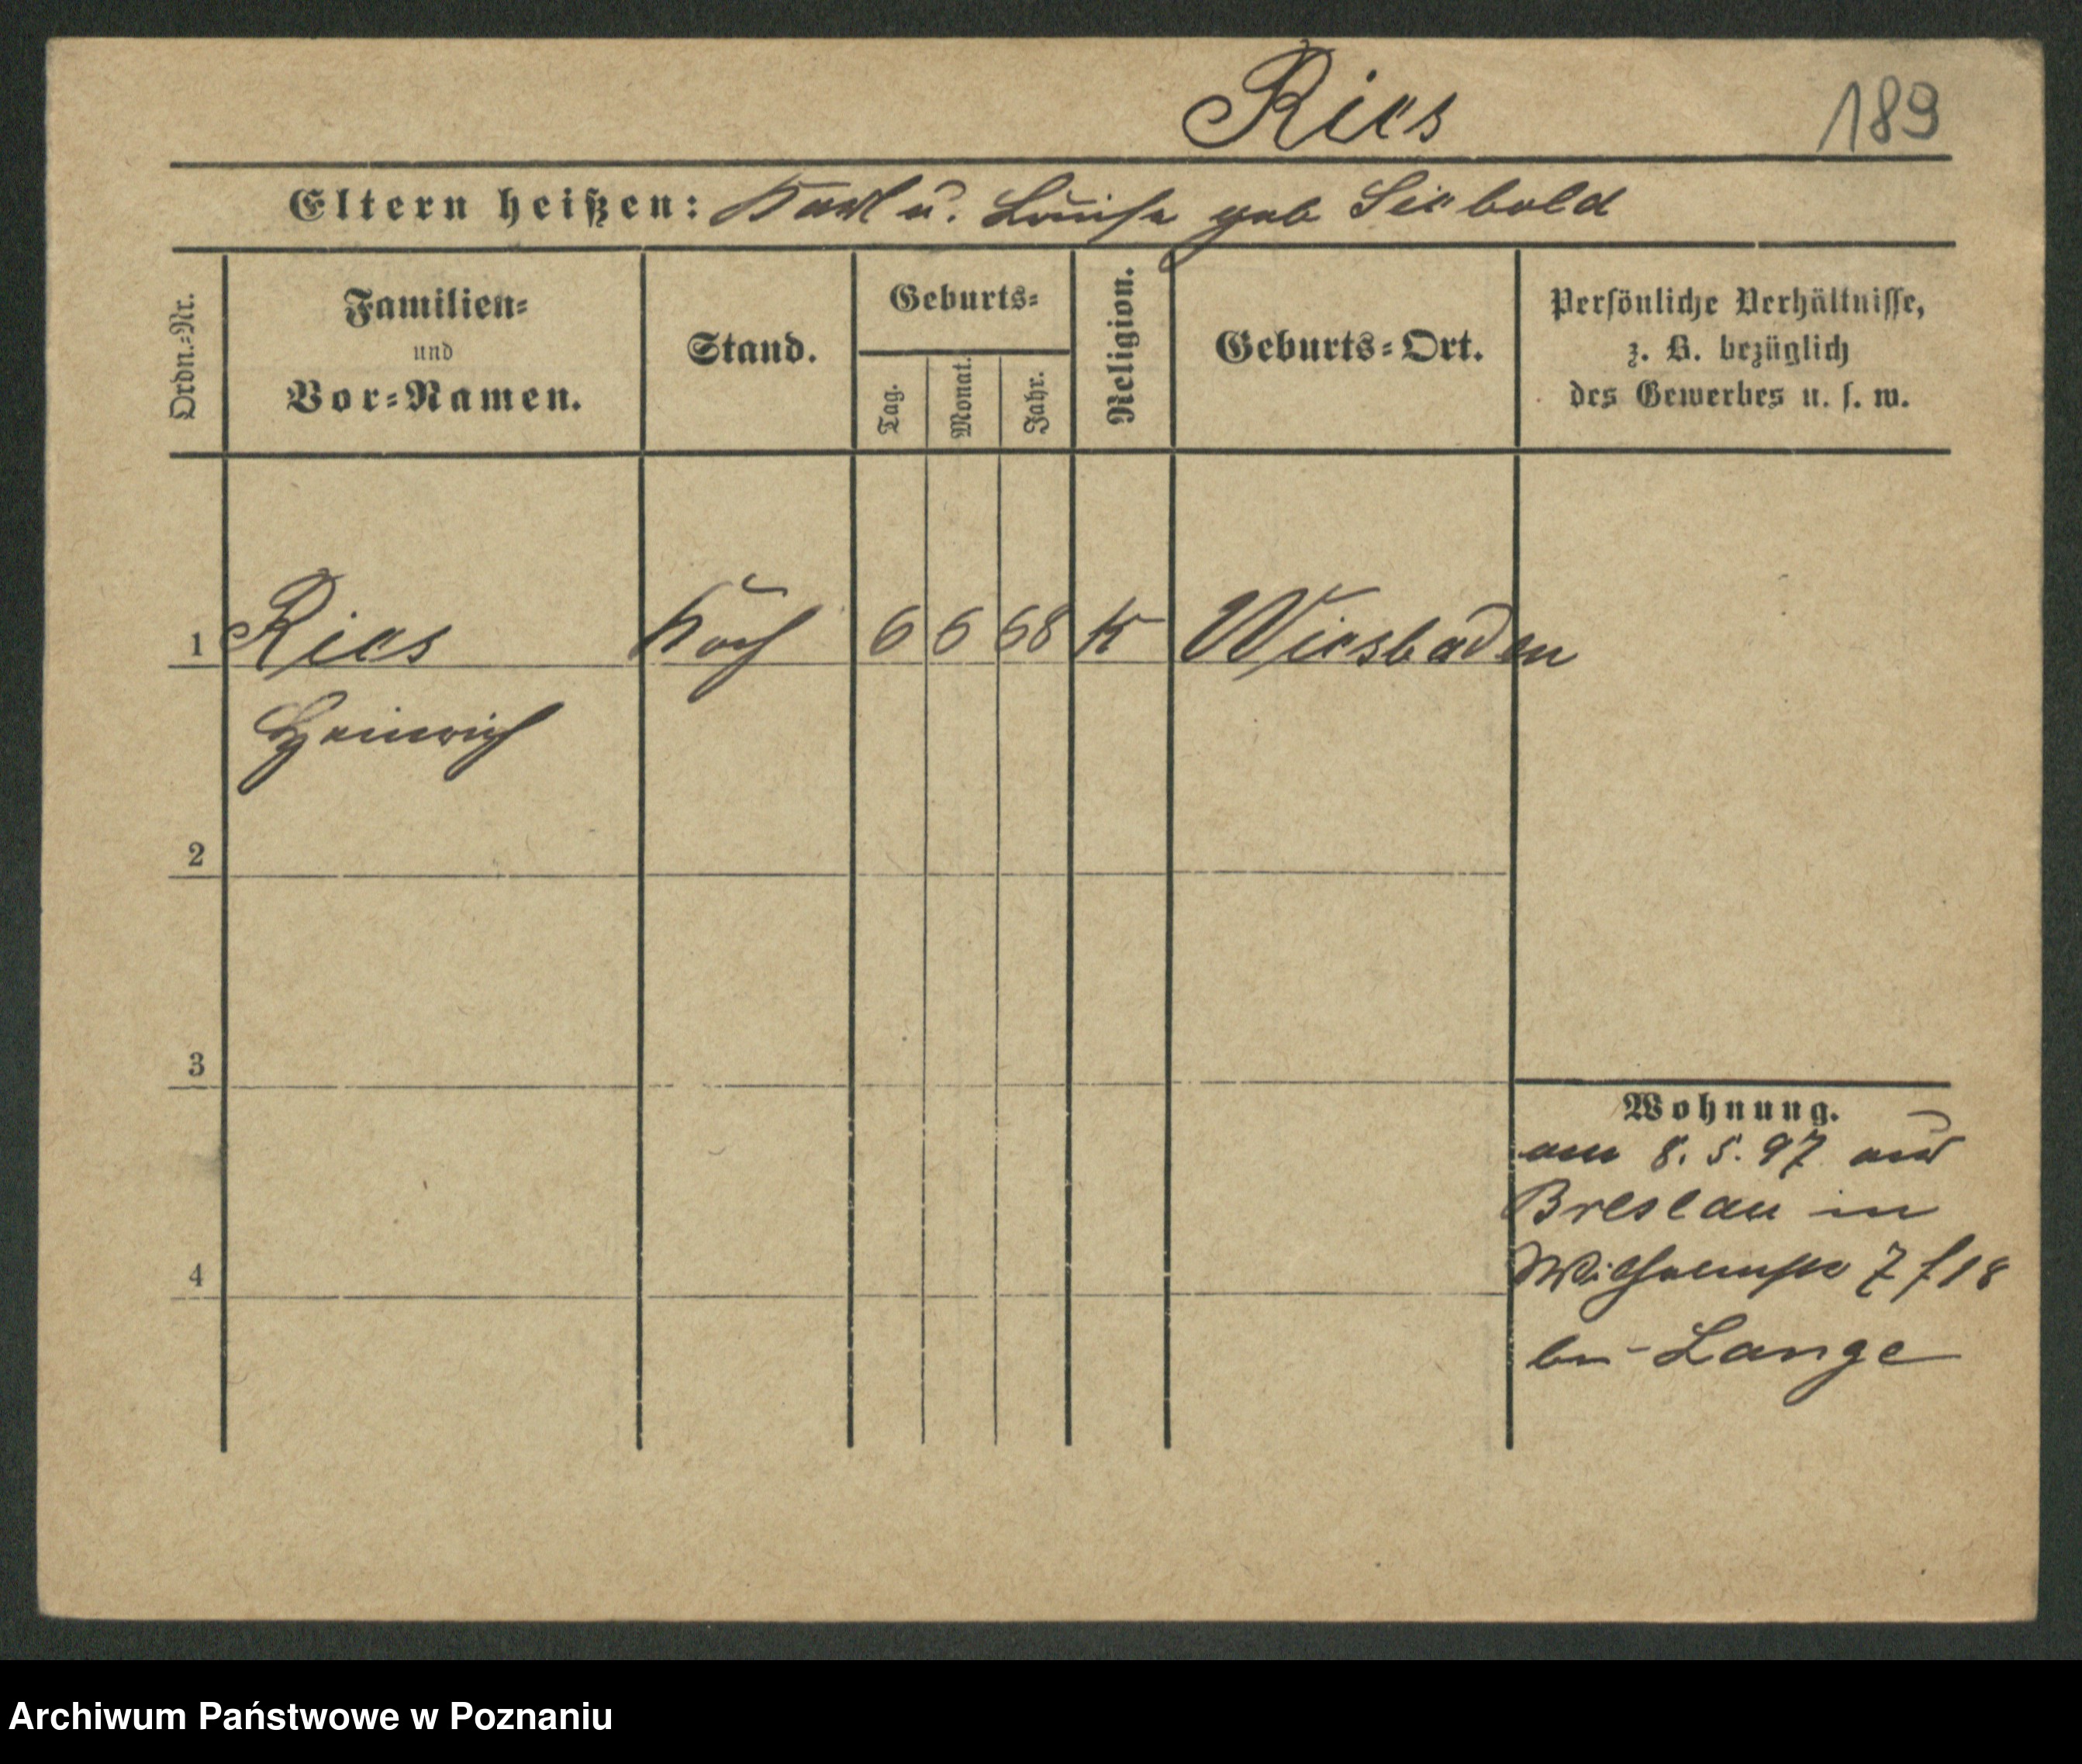 Ries
189
Eltern heißen: Karl u. Louise geb Siebold
Ordn.=Nr.
Familien=
und
Vor=Namen.
Stand.
Geburts=
Tag.
Monat.
Jahr.
Religion.
Geburts=Ort.
Persönliche Verhältnisse,
z. B. bezüglich
des Gewerbes u. s. w.
1 Ries Koch 6 6 68 K Wiesbaden
Heinrich
2
3
4
Wohnung.
am 8. 5. 97 aus
Breslau in
Wilhelmstr 7/18
bei Lange
Archiwum Państwowe w Poznaniu